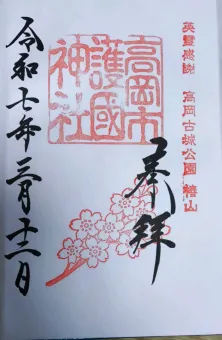 英霊感謝 高岡古城公園 鎮山
高岡市
護國
神社
奉拝
令和七年三月十二日